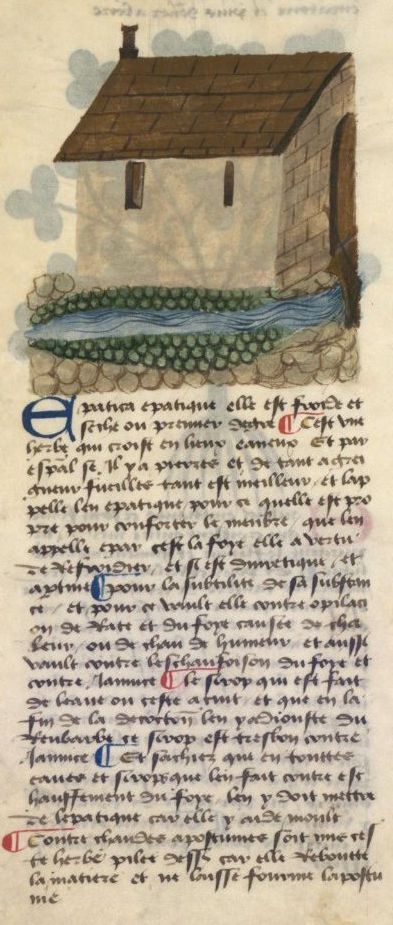 Epatica epatique elle est froide et
seche ou premier degre ¶ Cest vne
herbe qui croist en lieux eaueux Et par
espal se il y a pierres et de tant a grei
gneur fueilles tant est meilleur et lap
pelle len epatique pour ce quelle est pro
pre pour conforter le menbre que len
appelle epar cest la foye elle a vertu
de Refroidier et si est diuretique et
¶ pour la subtilite de sa substan
ce et pour ce vault elle contre opilaci
on de Rate et du foye causee de cha
leur ou de chau de humeur et aussi
vault contre leschaufoison du foye et
contre Jaunice ¶ le sirop qui est fait
de leaue ou ceste a cuit et que en la
fin de la decocton len y adiouste du
Reubarbe ce sirop est tresbon contre
Jaunice ¶ Et sachiez que en touttes
eaues et sirops que len fait contre esc
hauffement du foye len y doit mettre
de lepatique car elle y aide moult
¶ Contre chaudes apostumes soit mis ces
te herbe pilee dessus car elle Reboutte
la matiere et ne laisse fourme lapostu
me